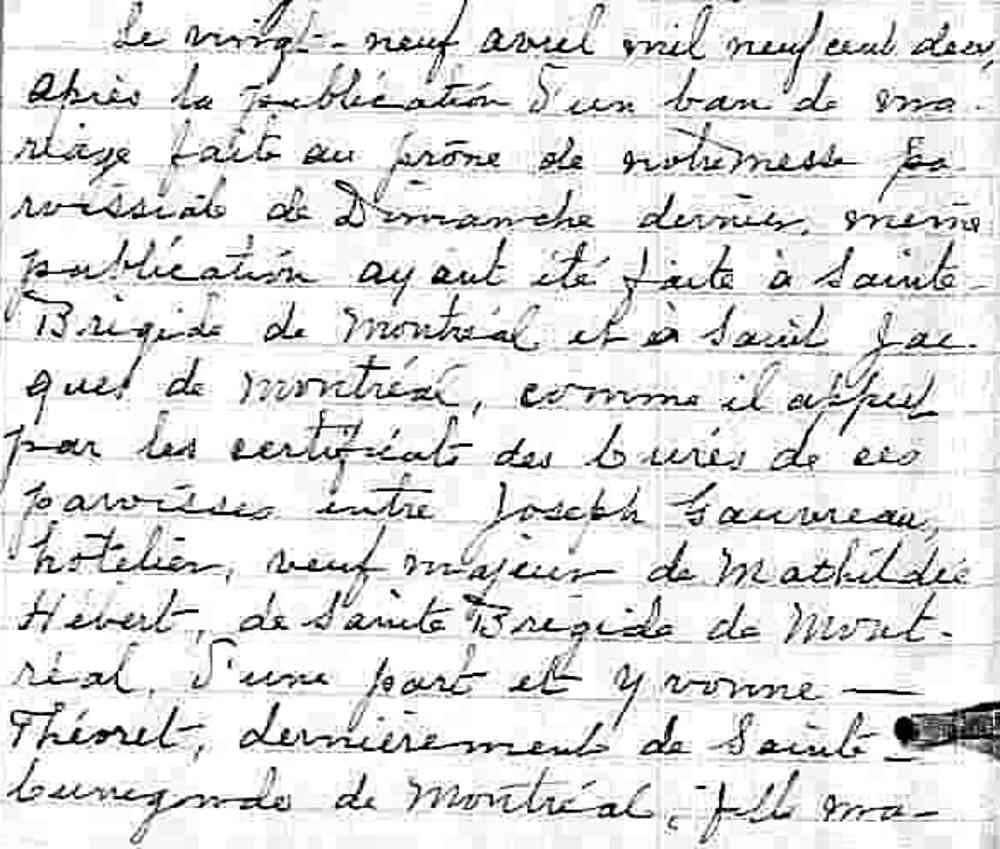 Le vingt-neuf avril mil neuf cent deux,
après la publication d'un ban de ma-
riage faite au prône de notre messe pa
roissiale de Dimanche dernier, même
publication ayant été faite à Sainte-
Brigide de Montréal et à Saint Jac-
ques de Montréal, comme il appert
par les certificats des Curés de ces
paroisses entre Joseph Gauvreau,
hôtelier, veuf majeur de Mathildée
Hébert, de Sainte Brigide de Mont-
réal, d'une part et Yvonne —
Théoret, dernièrement de Sainte-
Cunégonde de Montréal, fille ma-